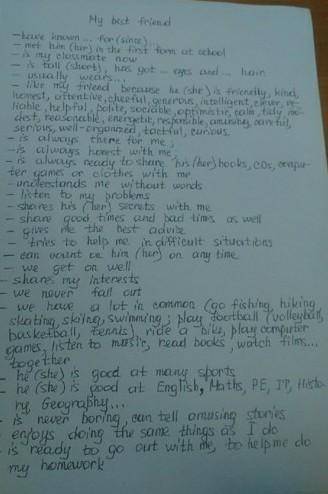 My best friend
- have known ... for (since) ...
- met him (her) in the first form at school
- is my classmate now
- is tall (short), has got ... eyes and ... hair
- usually wears...
- like my friend because he (she) is friendly, kind,
honest, attentive, cheeful, generous, intelligent, clever, re-
liable, helpful, polite, sociable, optimistic, calm, tidy, mo-
dest, reasonable, energetic, responsible, amusing, careful,
serious, well-organized, tactful, curious.
- is always there for me;
- is always honest with me
- is always ready to share his (her) books, CDs, compu-
ter games or clothes with me
- understands me without words
- listen to my problems
- shares his (her) secrets with me
- share good times and bad times as well
- gives me the best advise
- tries to help me in difficult situations
- can count on him (her) on any time
- we get on well
- shares my interests
- we never fall out
- we have a lot in common (go fishing, hiking,
skating, skiing, swimming; play football (volleyball,
basketball, tennis), ride a bike, play computer
games, listen to music, read books, watch films...
together
- he (she) is good at many sports
- he (she) is good at English, Maths, PE, IT, Histo-
ry, Geography...
- is never boring, can tell amusing stories
- enjoys doing the same things as I do
- is ready to go out with me, to help me do
my homework